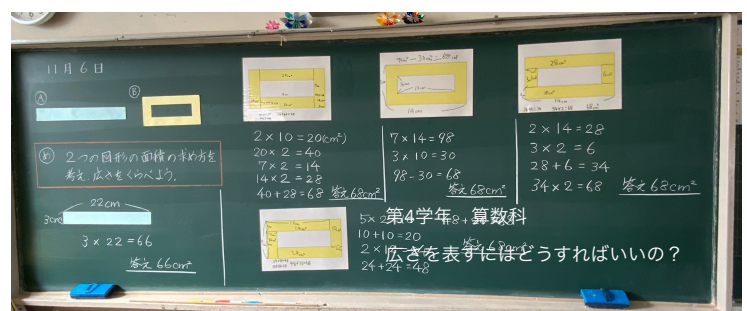 11月6日
Ⓐ
Ⓑ
め
2つの図形の面積の求め方を
考え、広さをくらべよう。
22cm
3cm
3×22=66
答え 66cm²
2×10=20(cm²)
20×2=40
7×2=14
14×2=28
40+28=68 答え 68cm²
7×14=98
3×10=30
98-30=68
答え 68cm²
14cm
2×14=28
3×2=6
28+6=34
34×2=68 答え 68cm²
28cm²
14cm
10+10=20
24+24=48
答え 68cm²
第4学年 算数科
広さを表すにはどうすればいいの？